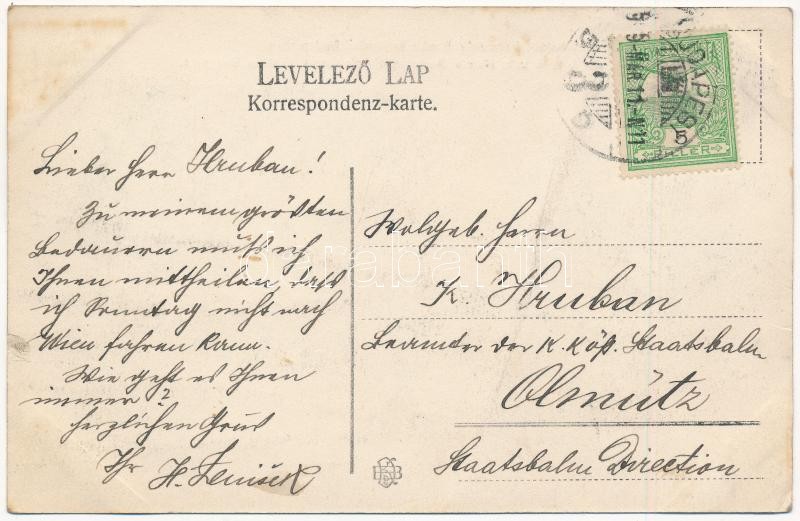 LEVELEZŐ LAP
Korrespondenz-karte.
BUDAPEST
5
FILLER
Lieber Herr Hruban!
Zu meinem größten
Bedauern muß ich
Ihnen mittheilen, daß
ich Sonntag nicht nach
Wien fahren kann.
Wie geht es Ihnen
immer?
herzlichen Gruß
Ihr H.
Wolgeb. Herrn
K. Hruban
Beamter der K. Köp. Staatsbahn
Olmütz
Staatsbahn Direction
darabanth